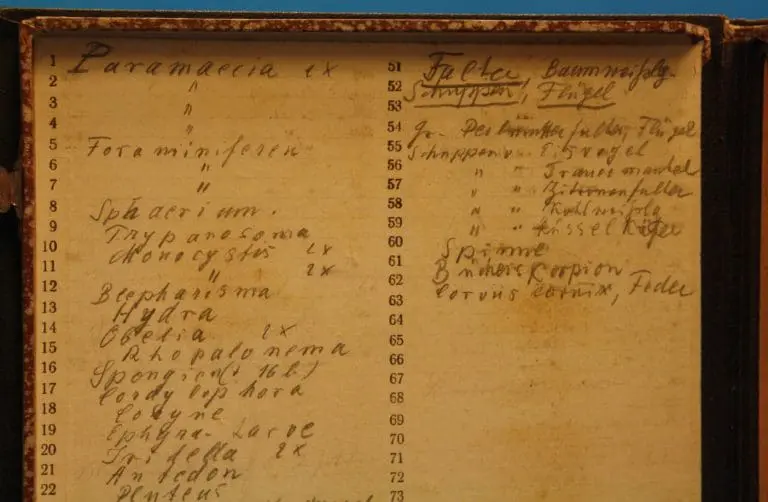 1 Paramaecia 2x
2 "
3 "
4 "
5 Foraminiferen
6 "
7 "
8 Sphaerium.
9 Trypanosoma
10 Monocystis 2x
11 " 2x
12 Blepharisma
13 Hydra
14 Obelia 2x
15 Rhopalonema
16 Spongien (+ 16 b.)
17 Cordylophora
18 Coryne
19 Ephyra-Larve
20 2x
21 Antedon
22 Pluteus
51 Falter, Baumweißlg.
52 Schuppen, Flügel
53
54 Gr. Perlmutterfalter, Flügel
55 Schuppen v. Eisvogel
56 " " Trauermantel
57 " " Zitronenfalter
58 " " Kohlweißlg
59 " " Rüsselkäfer
60 Spinne
61 Bücherskorpion
62 Corvus cornix, Feder
63
64
65
66
67
68
69
70
71
72
73